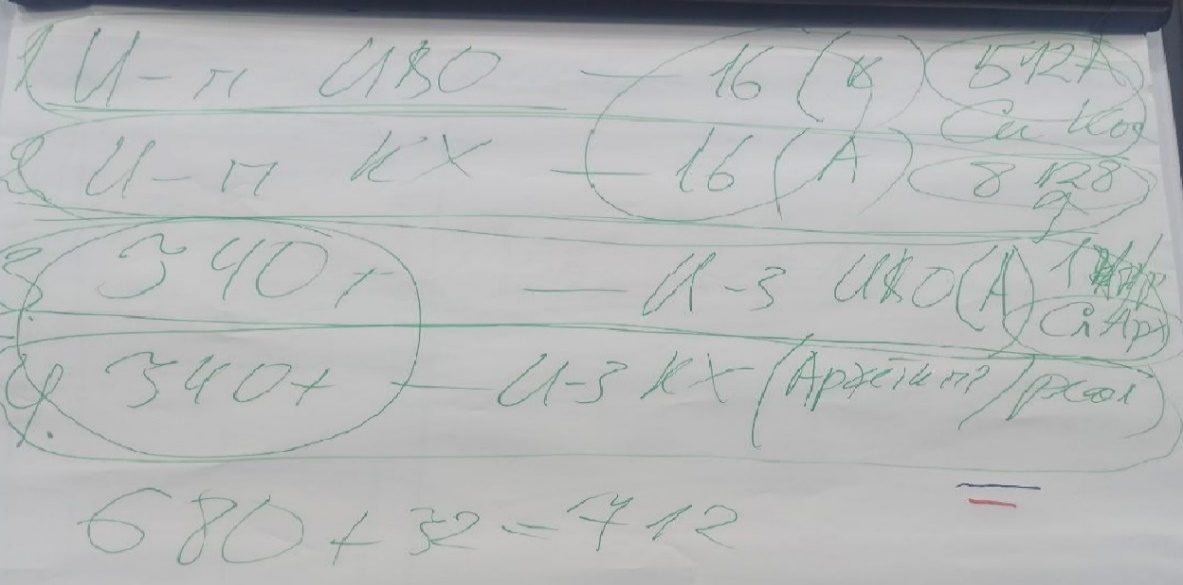 1 И-п ИВО — 16 (К) 512 А
Си Код
2. И-п КХ — 16 (А) 8 128
3. 340+ — И-з ИВО (А) 1
Си Арх
4. 340+ — И-з КХ (
680+32=712